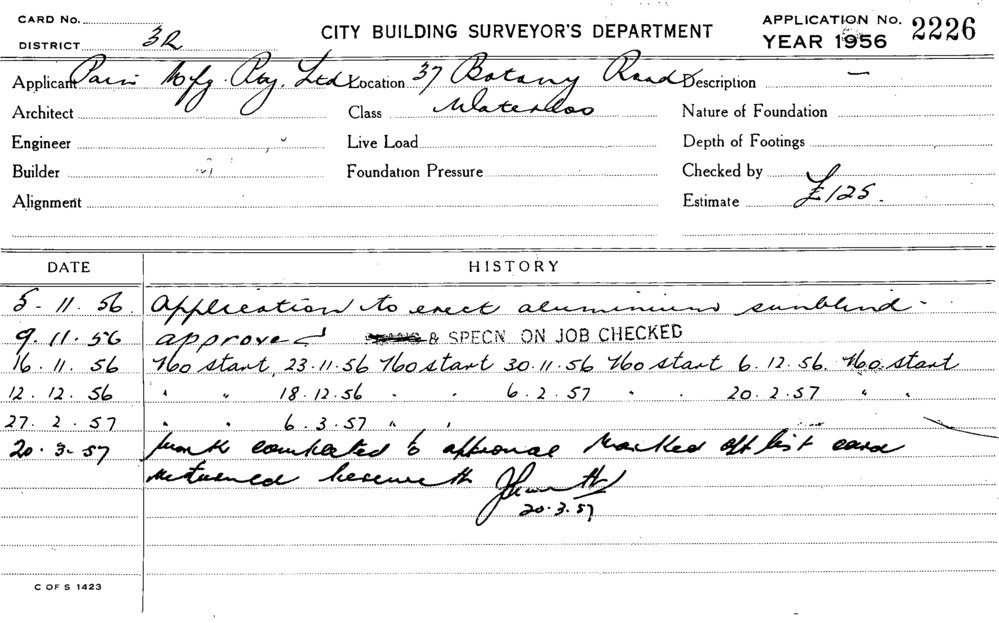 CARD No.
DISTRICT 3R
CITY BUILDING SURVEYOR'S DEPARTMENT
APPLICATION No. 2226
YEAR 1956
Applicant Paris Mfg. Pty. Ltd. Location 37 Botany Road Description —
Architect Class Waterloo Nature of Foundation
Engineer Live Load Depth of Footings
Builder Foundation Pressure Checked by
Alignment Estimate £125.
DATE HISTORY
5-11.56. Application to erect aluminium sunblind -
9.11.56 approved & SPECN ON JOB CHECKED
16.11.56 No start, 23.11.56 No start 30.11.56 No start 6.12.56. No start
12.12.56 " " 18.12.56 " " 6.2.57 " " 20.2.57 " "
27.2.57 " " 6.3.57 " "
20.3.57 work completed to approval marked off list card
returned herewith
20.3.57
C OF S 1423